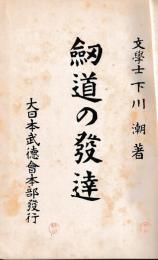 文學士 下川 潮 著
劒道の發達
大日本武德會本部發行